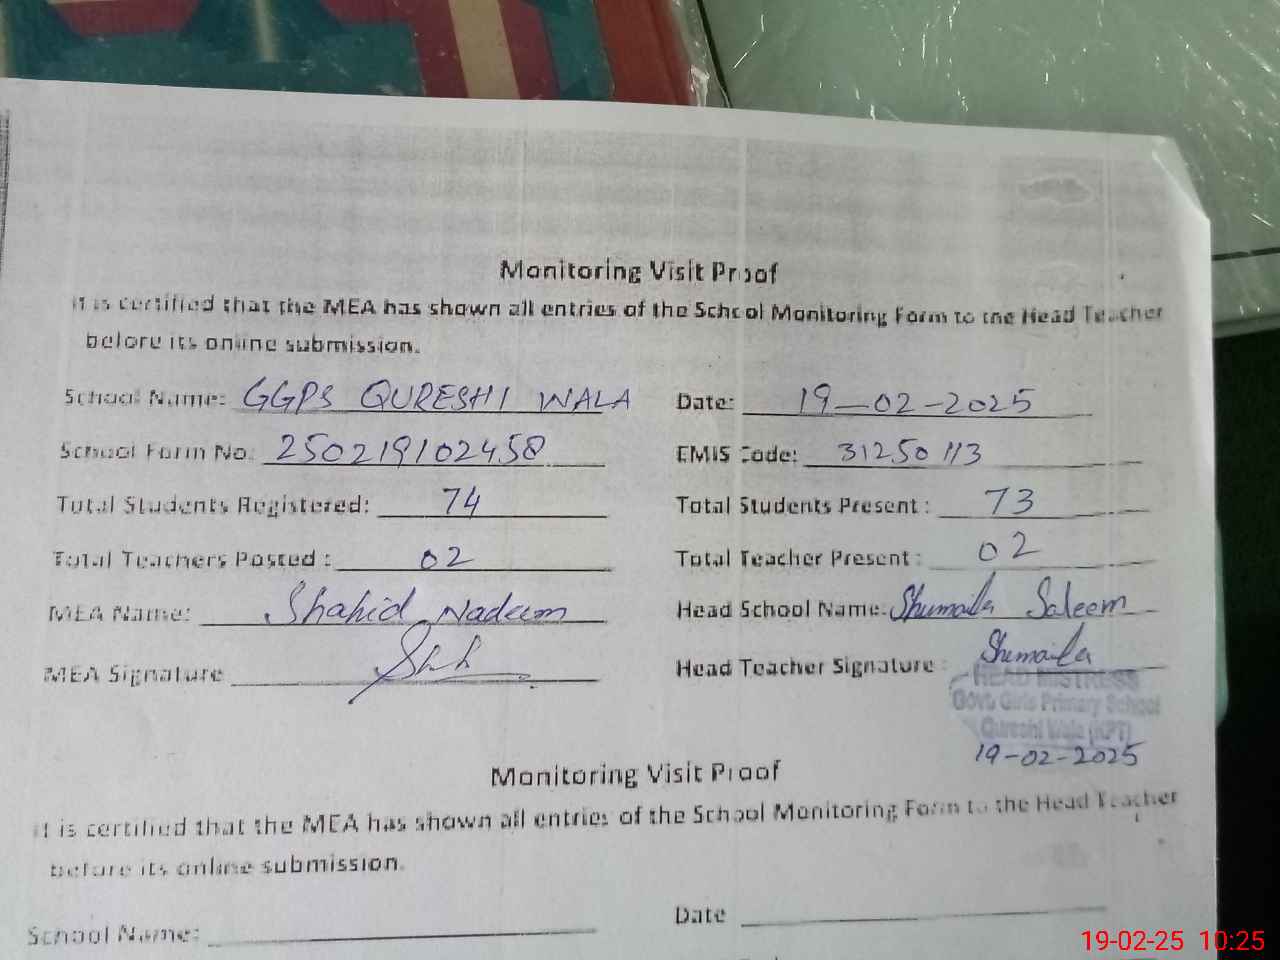 Monitoring Visit Proof
It is certified that the MEA has shown all entries of the School Monitoring Form to the Head Teacher
before its online submission.
School Name: GGPS QURESHI WALA Date: 19-02-2025
School Form No: 250219102458 EMIS Code: 31250113
Total Students Registered: 74 Total Students Present : 73
Total Teachers Posted : 02 Total Teacher Present : 02
MEA Name: Shahid Nadeem Head School Name: Shumaila Saleem
MEA Signature Head Teacher Signature : Shumaila
HEAD MISTRESS
Govt. Girls Primary School
Qureshi Wala (KPT)
19-02-2025
Monitoring Visit Proof
It is certified that the MEA has shown all entries of the School Monitoring Form to the Head Teacher
before its online submission.
School Name: Date
19-02-25 10:25